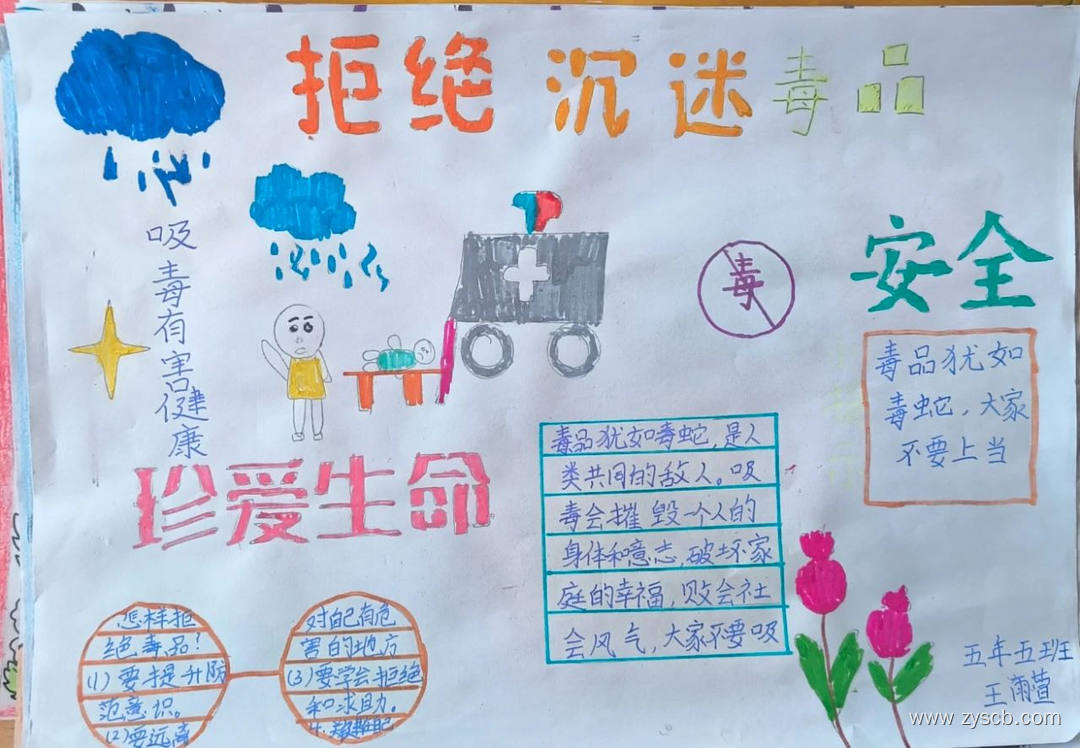 拒绝沉迷毒品
吸毒有害健康
毒
安全
毒品犹如
毒蛇，大家
不要上当
珍爱生命
毒品犹如毒蛇，是人
类共同的敌人。吸
毒会摧毁一个人的
身体和意志，破坏家
庭的幸福，败会社
会风气，大家不要吸
怎样拒
绝毒品！
(1)要提升防
范意识。
(2)要远离
对自己有危
害的地方
(3)要学会拒绝
和求助。
五年五班
王雨萱
www.zyscb.com